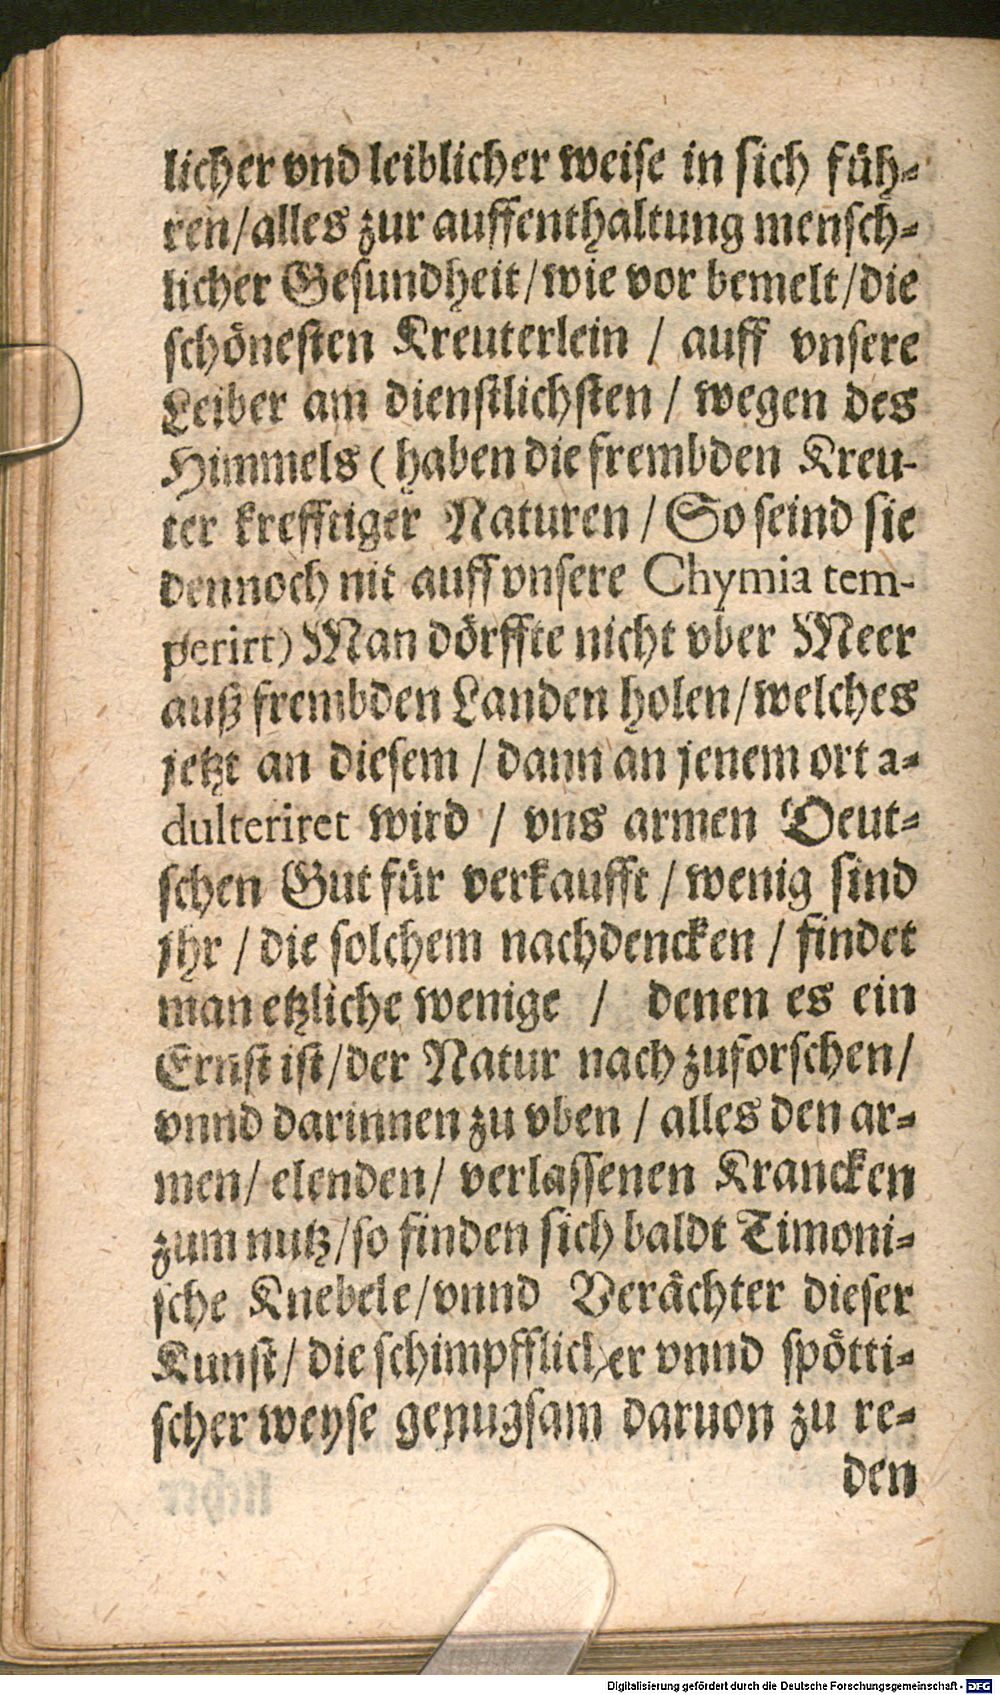 licher vnd leiblicher weise in sich füh-
ren/alles zur auffenthaltung mensch-
licher Gesundheit/wie vor bemelt/die
schönesten Kreuterlein / auff vnsere
Leiber am dienstlichsten / wegen des
Himmels (haben die frembden Kreu-
ter krefftiger Naturen / So seind sie
dennoch nit auff vnsere Chymia tem-
perirt) Man dörffte nicht vber Meer
auß frembden Landen holen/welches
jetzt an diesem / dann an jenem ort a-
dulteriret wird / vns armen Deut-
schen Gut für verkaufft / wenig sind
jhr / die solchem nachdencken / findet
man etzliche wenige / denen es ein
Ernst ist/der Natur nach zuforschen/
vnnd darinnen zu vben / alles den ar-
men/ elenden/ verlassenen Krancken
zum nutz/so finden sich baldt Timoni-
sche Knebele/vnnd Verächter dieser
Kunst/ die schimpfflicher vnnd spötti-
scher weyse genugsam daruon zu re-
den
Digitalisierung gefördert durch die Deutsche Forschungsgemeinschaft - DFG